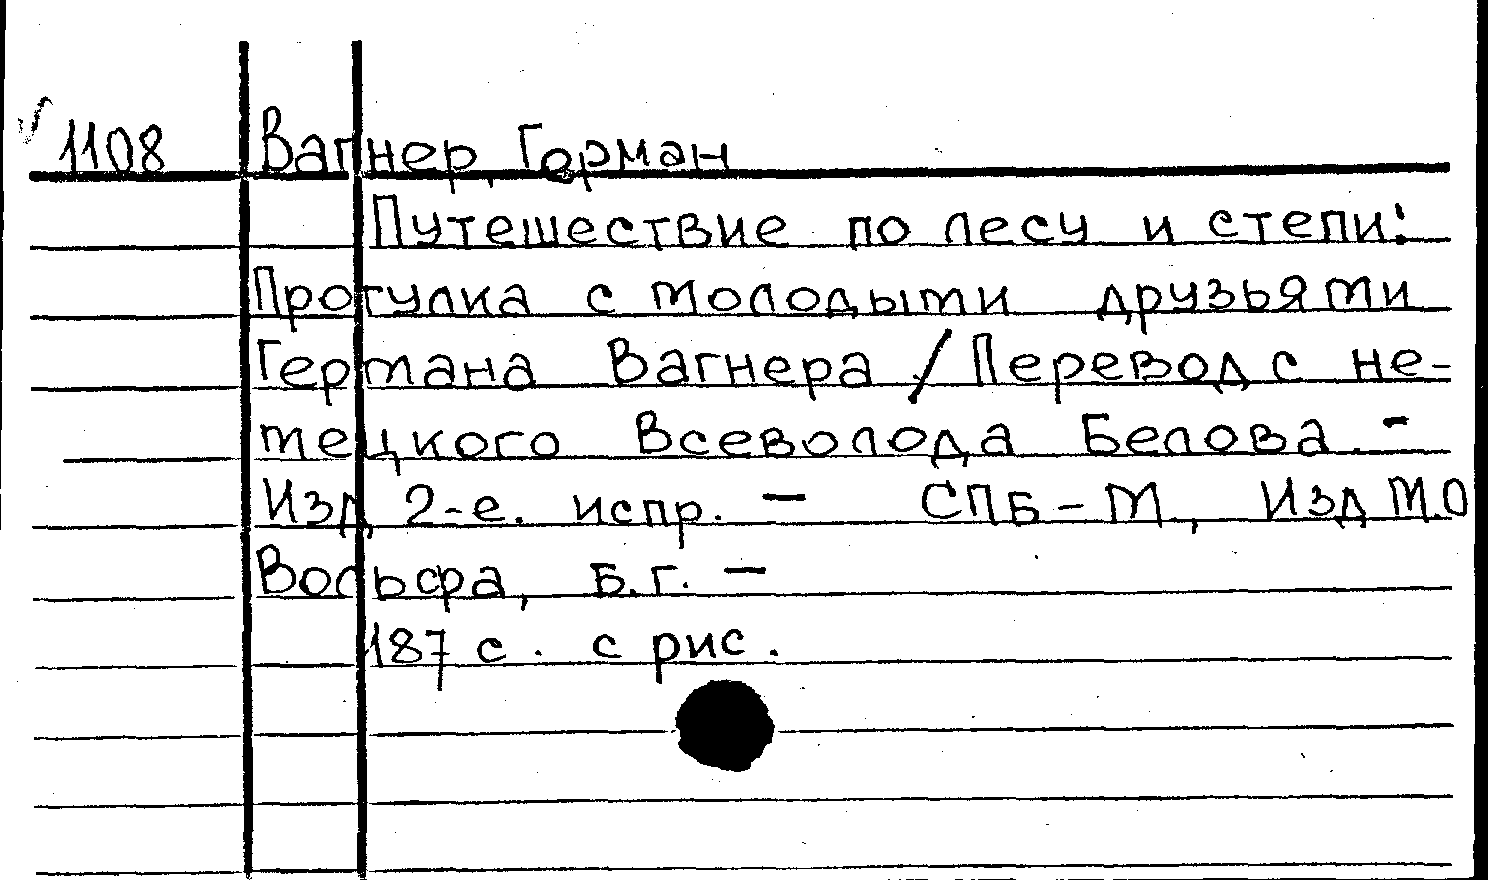 √ 1108 Вагнер, Герман
Путешествие по лесу и степи:
Прогулка с молодыми друзьями
Германа Вагнера / Перевод с не-
мецкого Всеволода Белова. -
Изд 2-е. испр. — СПБ - М, Изд М.О
Вольфа, Б.г. —
187 с. с рис.